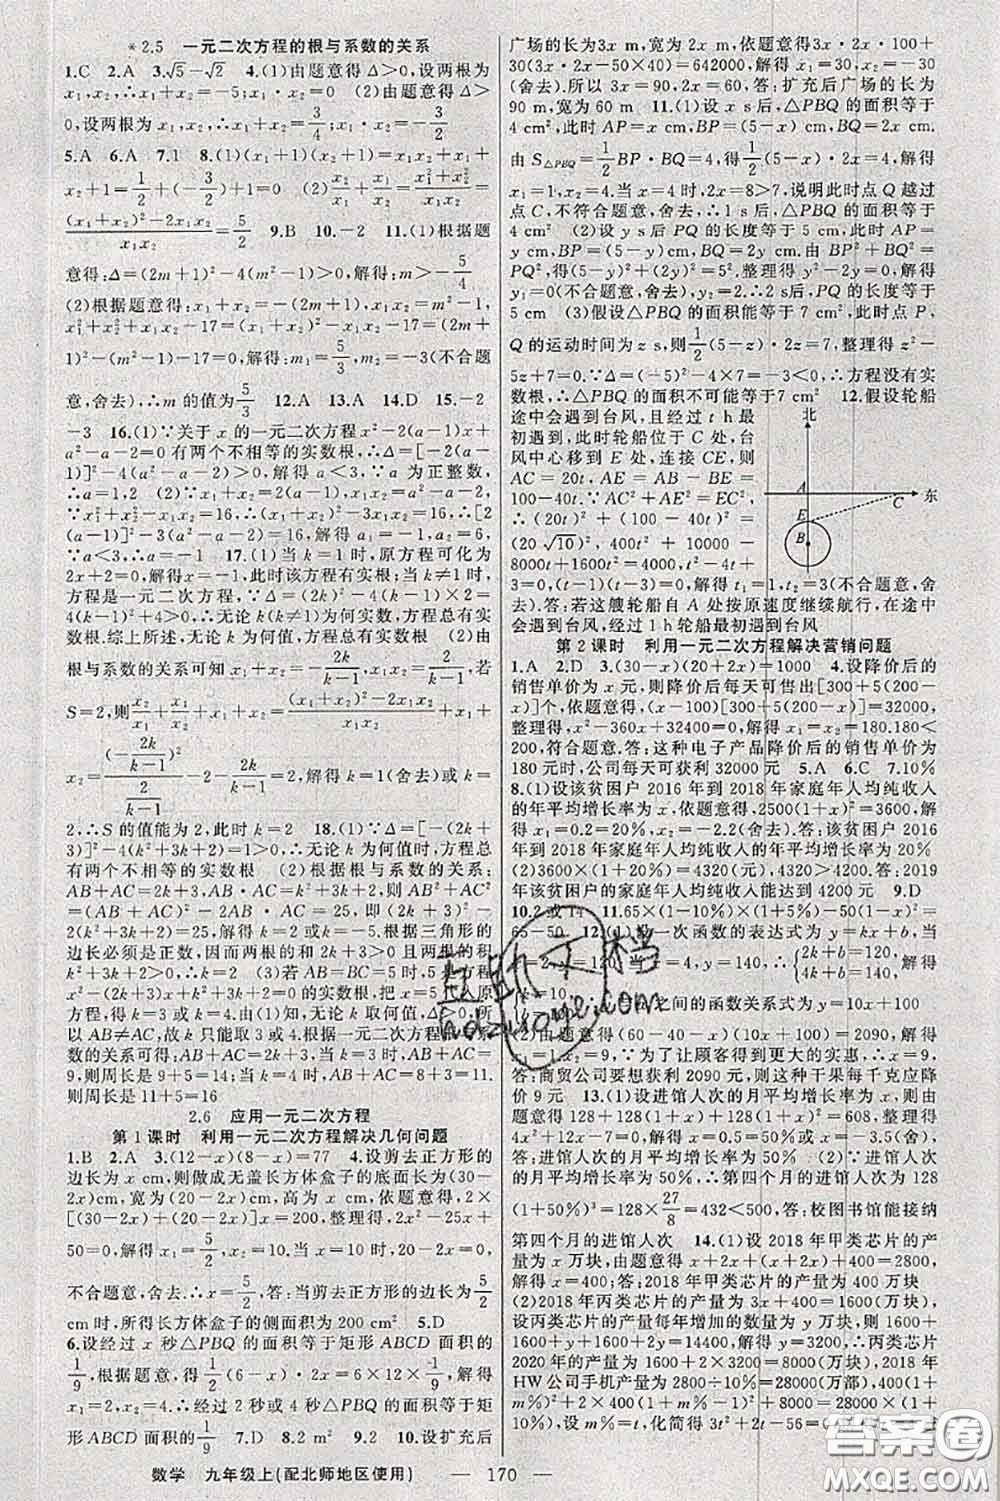 *2.5 一元二次方程的根与系数的关系
1.C 2.A 3.√5-√2 4.(1)由题意得Δ>0,设两根为
x₁,x₂,则x₁+x₂=-5;x₁·x₂=0 (2)由题意得Δ>
0,设两根为x₁,x₂,则x₁+x₂=3/4;x₁·x₂=-3/2
5.A 6.A 7.1 8.(1)(x₁+1)(x₂+1)=x₁x₂+x₁+
x₂+1=1/2+(-3/2)+1=0 (2)x₂/x₁+x₁/x₂=(x₁²+x₂²)/(x₁x₂)=
((x₁+x₂)²-2x₁x₂)/(x₁x₂)=5/2 9.B 10.-2 11.(1)根据题
意得:Δ=(2m+1)²-4(m²-1)>0,解得:m>-5/4
(2)根据题意得:x₁+x₂=-(2m+1),x₁x₂=m²-1,
x₁²+x₂²+x₁x₂-17=(x₁+x₂)²-x₁x₂-17=(2m+
1)²-(m²-1)-17=0,解得:m₁=5/3,m₂=-3(不合题
意,舍去),∴m的值为5/3 12.A 13.A 14.D 15.-2-
-3 16.(1)∵关于x的一元二次方程x²-2(a-1)x
+a²-a-2=0有两个不相等的实数根,∴Δ=[-2(a-
1)]²-4(a²-a-2)>0,解得a<3,∵a为正整数,
∴a=1,2 (2)∵x₁+x₂=2(a-1),x₁x₂=a²-a-2,
∵x₁²+x₂²-x₁x₂=16,∴(x₁+x₂)²-3x₁x₂=16,∴[2
(a-1)]²-3(a²-a-2)=16,解得a₁=-1,a₂=6,
∵a<3,∴a=-1 17.(1)当k=1时,原方程可化为
2x+2=0,解得x=-1,此时该方程有实根;当k≠1时,
方程是一元二次方程,∵Δ=(2k)²-4(k-1)×2=
4(k-1)²+4>0,∴无论k(k≠1)为何实数,方程总有实
数根.综上所述,无论k为何值,方程总有实数根 (2)由
根与系数的关系可知x₁+x₂=-2k/(k-1),x₁x₂=2/(k-1),若
S=2,则x₂/x₁+x₁/x₂+x₁+x₂=((x₁+x₂)²-2x₁x₂)/(x₁x₂)+x₁+
x₂=(-2k/(k-1))²/(2/(k-1))-2-2k/(k-1)=2,解得k=1(舍去)或k=
2,∴S的值能为2,此时k=2 18.(1)∵Δ=[-(2k+
3)]²-4(k²+3k+2)=1>0,∴无论k为何值时,方程总
有两个不相等的实数根 (2)根据根与系数的关系:
AB+AC=2k+3,AB·AC=k²+3k+2,则AB²+AC²
=(AB+AC)²-2AB·AC=25,即(2k+3)²-2(k²+
3k+2)=25,解得k=2或k=-5.根据三角形的
边长必须是正数,因而两根的和2k+3>0且两根的积
k²+3k+2>0,∴k=2 (3)若AB=BC=5时,5是方程
x²-(2k+3)x+k²+3k+2=0的实数根,把x=5代入原
方程,得k=3或k=4.由(1)知,无论k取何值,Δ>0,所
以AB≠AC,故k只能取3或4.根据一元二次方程的根与系
数的关系可得:AB+AC=2k+3,当k=3时,AB+AC=
9,则周长是9+5=14;当k=4时,AB+AC=8+3=11.
则周长是11+5=16
2.6 应用一元二次方程
第1课时 利用一元二次方程解决几何问题
1.B 2.A 3.(12-x)(8-x)=77 4.设剪去正方形的
边长为x cm,则做成无盖长方体盒子的底面长为(30-
2x)cm,宽为(20-2x)cm,高为x cm,依题意得,2×
[(30-2x)+(20-2x)]x=200,整理得,2x²-25x+
50=0,解得x₁=5/2,x₂=10,当x=10时,20-2x=0,
不合题意,舍去;∴x=5/2.答:剪去正方形的边长为5/2
cm时,所得长方体盒子的侧面积为200 cm² 5.D
6.设经过x秒△PBQ的面积等于矩形ABCD面积的
1/9,根据题意得:1/2(6-x)×2x=6×12×1/9,解得x₁=2,
x₂=4.∴经过2秒或4秒△PBQ的面积等于矩形
ABCD面积的1/9 7.D 8.2 m² 9.2 10.设扩充后
广场的长为3x m,宽为2x m,依题意得3x·2x·100+
30(3x·2x-50×40)=642000,解得x₁=30,x₂=-30
(舍去).所以3x=90,2x=60,答:扩充后广场的长为
90 m,宽为60 m 11.(1)设x s后,△PBQ的面积等于
4 cm²,此时AP=x cm,BP=(5-x) cm,BQ=2x cm.
由S△PBQ=1/2BP·BQ=4,得1/2(5-x)·2x=4,解得
x₁=1,x₂=4.当x=4时,2x=8>7,说明此时点Q越过
点C,不符合题意,舍去,∴1 s后,△PBQ的面积等于
4 cm² (2)设y s后PQ的长度等于5 cm,此时AP=
y cm,BP=(5-y)cm,BQ=2y cm.由BP²+BQ²=
PQ²,得(5-y)²+(2y)²=5².整理得y²-2y=0,解得
y₁=0(不合题意,舍去),y₂=2.∴2s后,PQ的长度等于
5 cm (3)假设△PBQ的面积能等于7 cm²,此时点P、
Q的运动时间为z s,则1/2(5-z)·2z=7,整理得z²-
5z+7=0.∵Δ=(-5)²-4×7=-3<0,∴方程没有实
数根,∴△PBQ的面积不可能等于7 cm² 12.假设轮船
途中会遇到台风,且经过t h最
初遇到,此时轮船位于C处,台
风中心移到E处,连接CE,则
AC=20t,AE=AB-BE=
100-40t.∵AC²+AE²=EC²,
∴(20t)²+(100-40t)²=
(20√10)²,400t²+10000-
8000t+1600t²=4000,t²-4t+
3=0,(t-1)(t-3)=0,解得t₁=1,t₂=3(不合题意,舍
去).答:若这艘轮船自A处按原速度继续航行,在途中
会遇到台风,经过1 h轮船最初遇到台风
北
A
C
东
E
B
第2课时 利用一元二次方程解决营销问题
1.A 2.D 3.(30-x)(20+2x)=1000 4.设降价后的
销售单价为x元,则降价后每天可售出[300+5(200-
x)]个,依题意得,(x-100)[300+5(200-x)]=32000,
整理得,x²-360x+32400=0,解得x₁=x₂=180.180<
200,符合题意.答:这种电子产品降价后的销售单价为
180元时,公司每天可获利32000元 5.A 6.C 7.10%
8.(1)设该贫困户2016年到2018年家庭年人均纯收入
的年平均增长率为x,依题意得,2500(1+x)²=3600,
解得x₁=0.2=20%,x₂=-2.2(舍去).答:该贫困户2016
年到2018年家庭年人均纯收入的年平均增长率为20%
(2)3600×(1+20%)=4320(元),4320>4200.答:2019
年该贫困户的家庭年人均纯收入能达到4200元 9.D
10.2或14 11.65×(1-10%)×(1+5%)-50(1-x)²=
65-50 12.(1)设一次函数的表达式为y=kx+b,当
x=2,y=120;当x=4,y=140,∴{2k+b=120, 4k+b=140,
k=10, 之间的函数关系式为y=10x+100
(2)由题意得(60-40-x)(10x+100)=2090,解得
x₁=1,x₂=9.∵为了让顾客得到更大的实惠,∴x=9.
答:商贸公司要想获利2090元,则这种干果每千克应降
价9元 13.(1)设进馆人次的月平均增长率为x,则由
题意得128+128(1+x)+128(1+x)²=608,整理得
4x²+12x-7=0,解得x=0.5=50%或x=-3.5(舍去).
答:进馆人次的月平均增长率为50% (2)∵进馆人次
的月平均增长率为50%,∴第四个月的进馆人次为128
(1+50%)³=128×27/8=432<500,答:校图书馆能接纳
第四个月的进馆人次 14.(1)设2018年甲类芯片的产
量为x万块,由题意得x+2x+(x+2x)+400=2800,
解得x=400;答:2018年甲类芯片的产量为400万块
(2)2018年丙类芯片的产量为3x+400=1600(万块),
设丙类芯片的产量每年增加的数量为y万块,则1600+
1600+y+1600+2y=14400,解得y=3200,∴丙类芯片
2020年的产量为1600+2×3200=8000(万块),2018年
HW公司手机产量为2800÷10%=28000(万部),
设m%=t,化简得3t²+2t-56=
数学 九年级上(配北师地区使用) — 170 —
答案圈
MXQE.COM